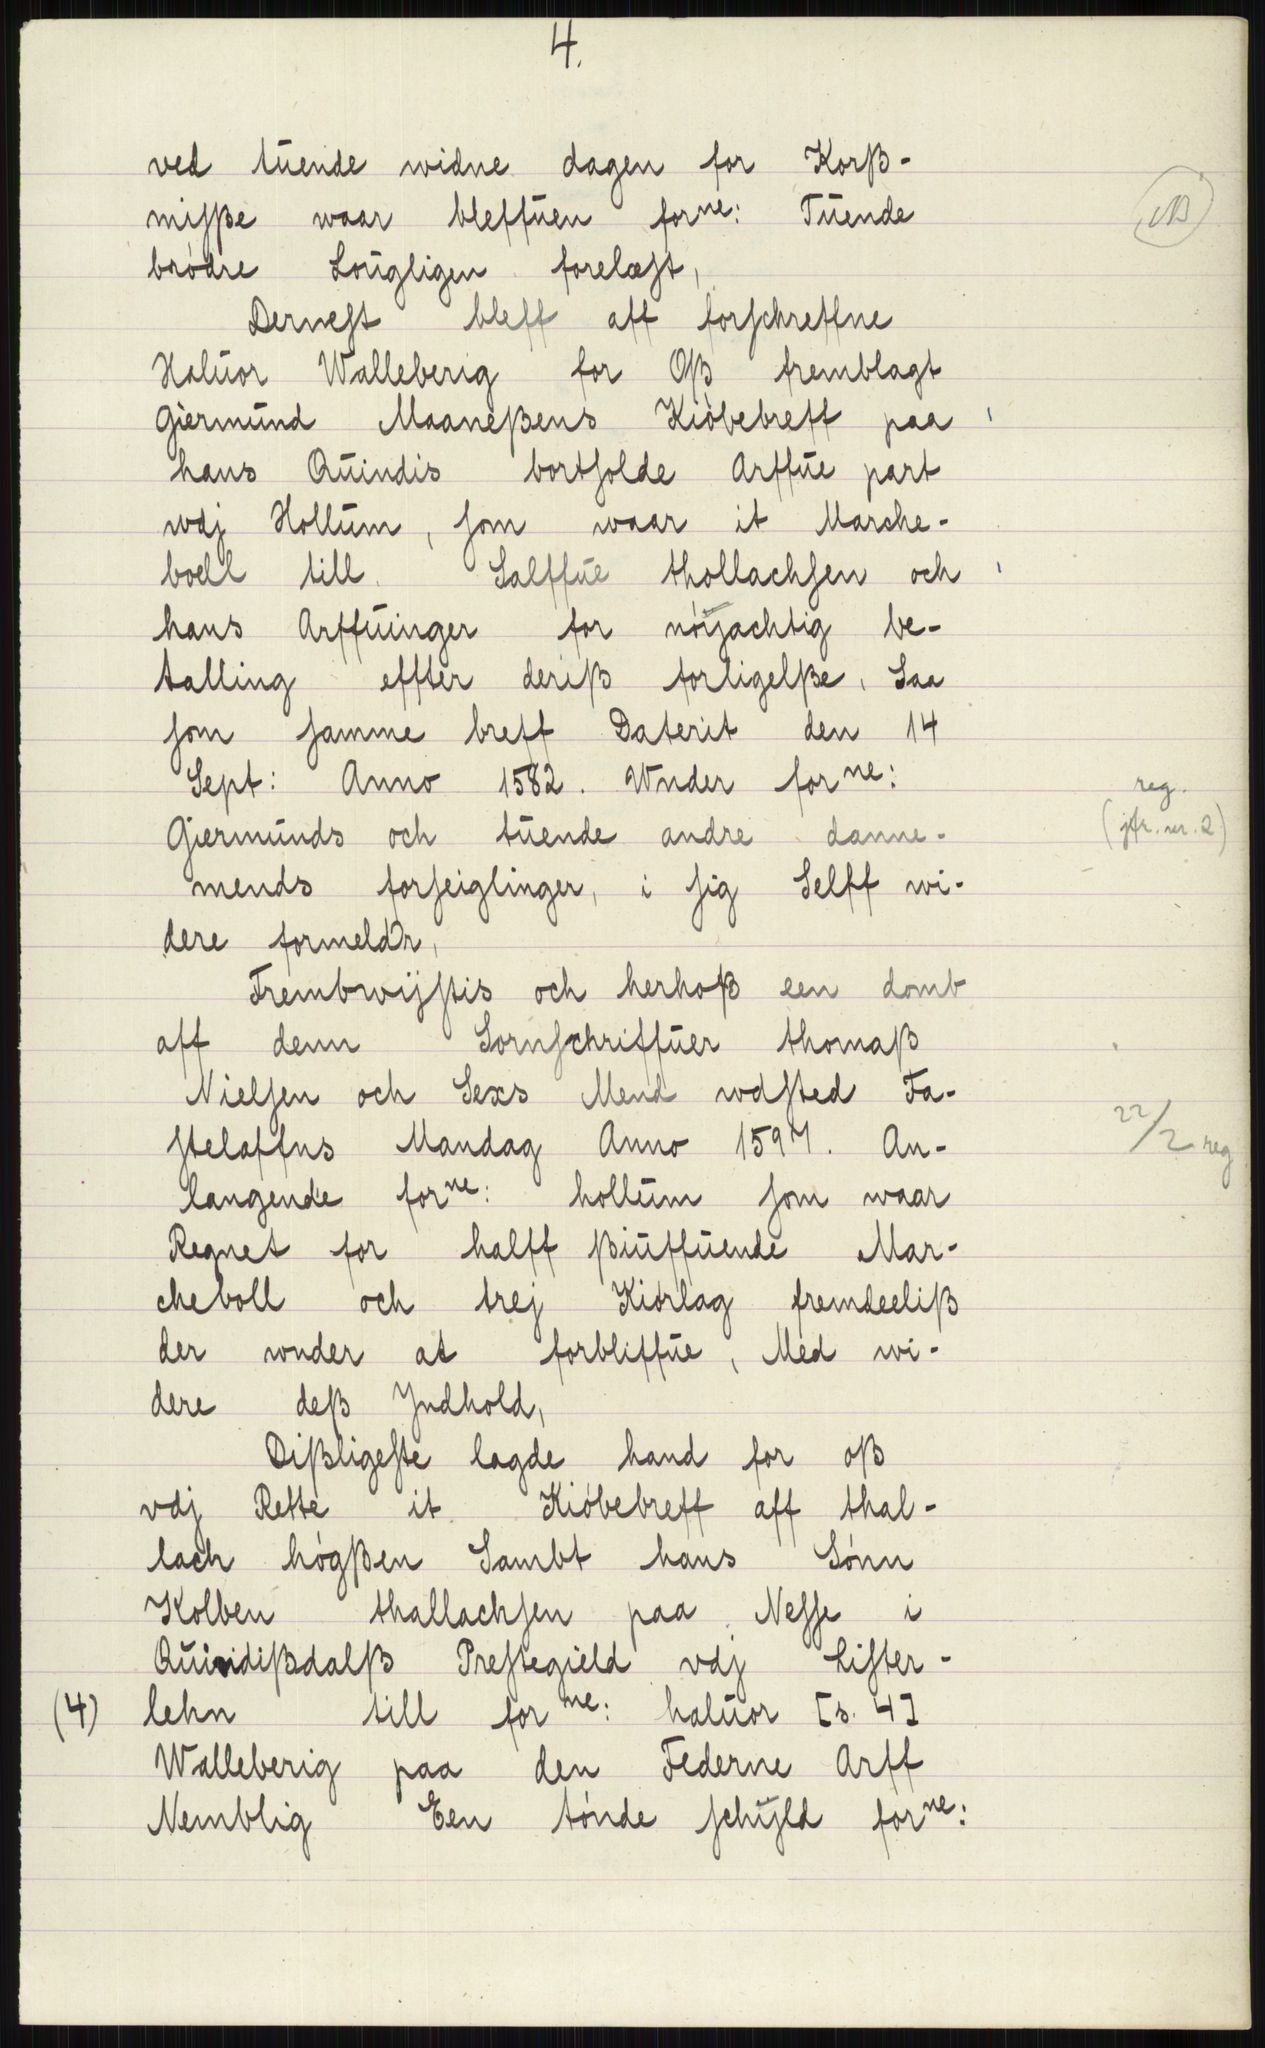 4.
ved tüende widne dagen for Korß-
misße waar bleffüen forne: Tüende
brødre Loügligen forelæst,
NB
Dernest bleff aff forschreffne
Halüor Walleberig for Oß fremblagt
Giermünd Maaneßens Kiøbebreff paa
hans Qüindis bortsolde Arffüe part
wdj Hollüm, som waar it Marche-
boell till Salffüe thollachsen och
hans Arffüinger for nøÿachtig be-
talling effter deriß forligelße, Saa
som samme breff Daterit den 14
Sept: Anno 1582. Wnder forne:
reg.
(jfr. nr. 2)
Giermünds och tüende andre danne-
mends forseiglinger, i sig Selff wi-
dere formeldr,
Frembwÿstis och herhoß een domb
aff denn Sornschriffüer thomaß
Nielsen och Sexs Mend wdsted Fa-
stelaffns Mandag Anno 1597. An-
22/2 reg
langende forne: hollüm som waar
Regnet for halff ßiüffüende Mar-
cheboll och trej Kiørlag fremdeeliß
der wnder at forbliffüe, Med wi-
dere deß Jndhold,
Dißligeste lagde hand for oß
vdj Rette it Kiøbebreff aff thal-
lach høgßen Sambt hans Sønn
Kolben thallachsen paa Nesse i
Qüindißdalß Prestegield vdj Lister-
(4) lehn till forne: halüor [s. 4]
Walleberig paa den Federne Arff
Nemblig Een tønde schÿld forne: